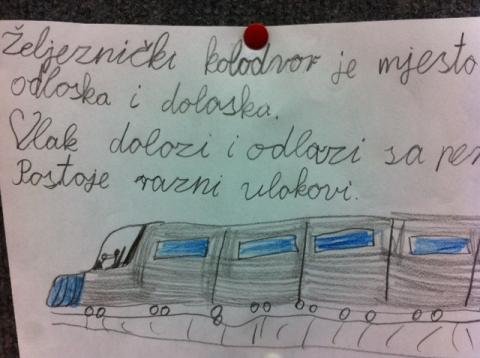 Željeznički kolodvor je mjesto
odloska i doloska.
Vlak dolazi i odlazi sa per
Postoje razni vlakovi.